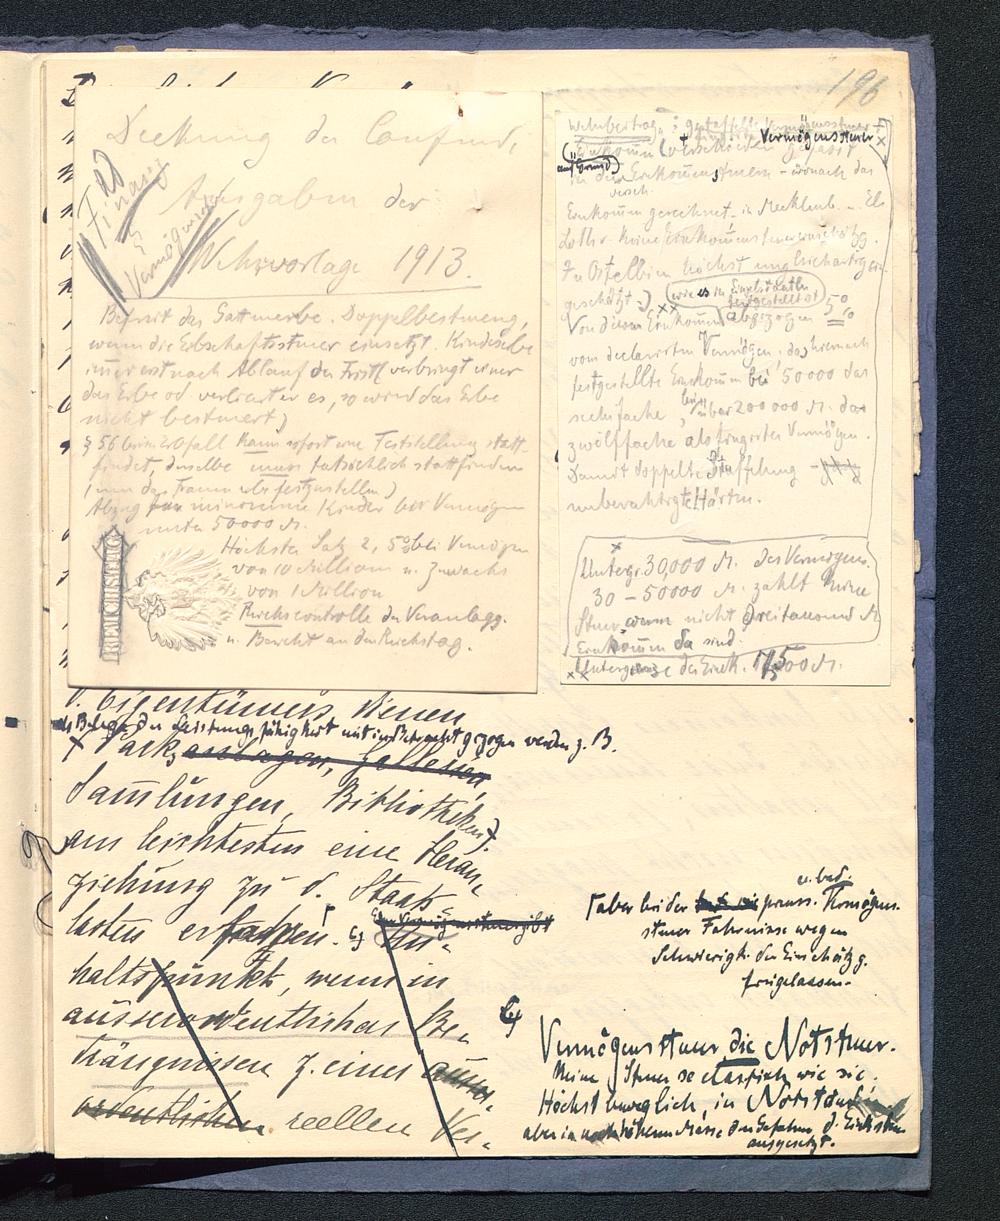 196
Deckung der laufend.
Ausgaben der
Wehrvorlage 1913.
20
Finanz
Vermögens
Befreit das Gattenerbe. Doppelbesteuerg,
wenn die Erbschaftssteuer einsetzt. Kindeserbe
immer erst nach Ablauf der Frist verbringt einer
das Erbe od verliert er es, so wird das Erbe
nicht besteuert)
§ 56 beim Erbfall kann sofort eine Feststellung statt-
findet, dieselbe muss tatsächlich stattfinden
(um das Frauen erbe festzustellen)
Abzug für minorenne Kinder bei Vermögen
unter 50000 M.
Höchster Satz 2,5% bei Vermögen
von 10 Millionen u. Zuwachs
von 1 Million
Reichscontrolle der Veranlagg.
u. Bericht an den Reichstag.
REICHSTAG
Wehrbeitrag: gestaffelte Vermögenssteuer
+ Vermögenssteuer
Einkomm (verschieden gefasst
auf Grund)
in den Einkommensteuern - wonach das
versch.
Einkommen gerechnet - in Mecklenb. - Els
Lothr. keine Einkommensteuereinschätzg.
In Ostelbien höchst ungleichartig ein-
geschätzt.)
wie es in Einzelstaaten
festgestellt ist
Von diesem Einkomm abgezogen 5%
vom declarirten Vermögen, das hiernach
festgestellte Einkomm bei 50000 das
sechsfache, bei über 200 000 M. das
zwölffache als fingirtes Vermögen.
Damit doppelte Staffelung -
unbeabsichtigte Härten.
Untergr. 30,000 M. des Vermögens.
30 - 50000 M. zahlt keine
Steuer, wenn nicht dreitausend M
Einkomm da sind.
Untergrenze des Eink. 7500 M.
d. Eigentümers dienen
als Belege der Leistungsfähigkeit mit in Betracht gezogen werden z. B.
Parkanlagen, Gallerien,
Samlungen, Bibliotheken).
am leichtesten eine Heran-
ziehung zu d. Staats
lasten erfassen. An-
haltspunkt, wenn in
ausserordentlichen Be-
drängnissen z. einer ausser-
ordentlichen reellen Ver-
u. bad.
aber bei der preuss. Vermögens-
steuer Fahrnisse wegen
Schwierigk. der Einschätzg.
freigelassen.
Vermögenssteuer die Notsteuer.
Keine Steuer so elastisch wie sie.
Höchst beweglich, in Notständen
aber in noch höherem Masse den Gefahren d. Einkstn
ausgesetzt.